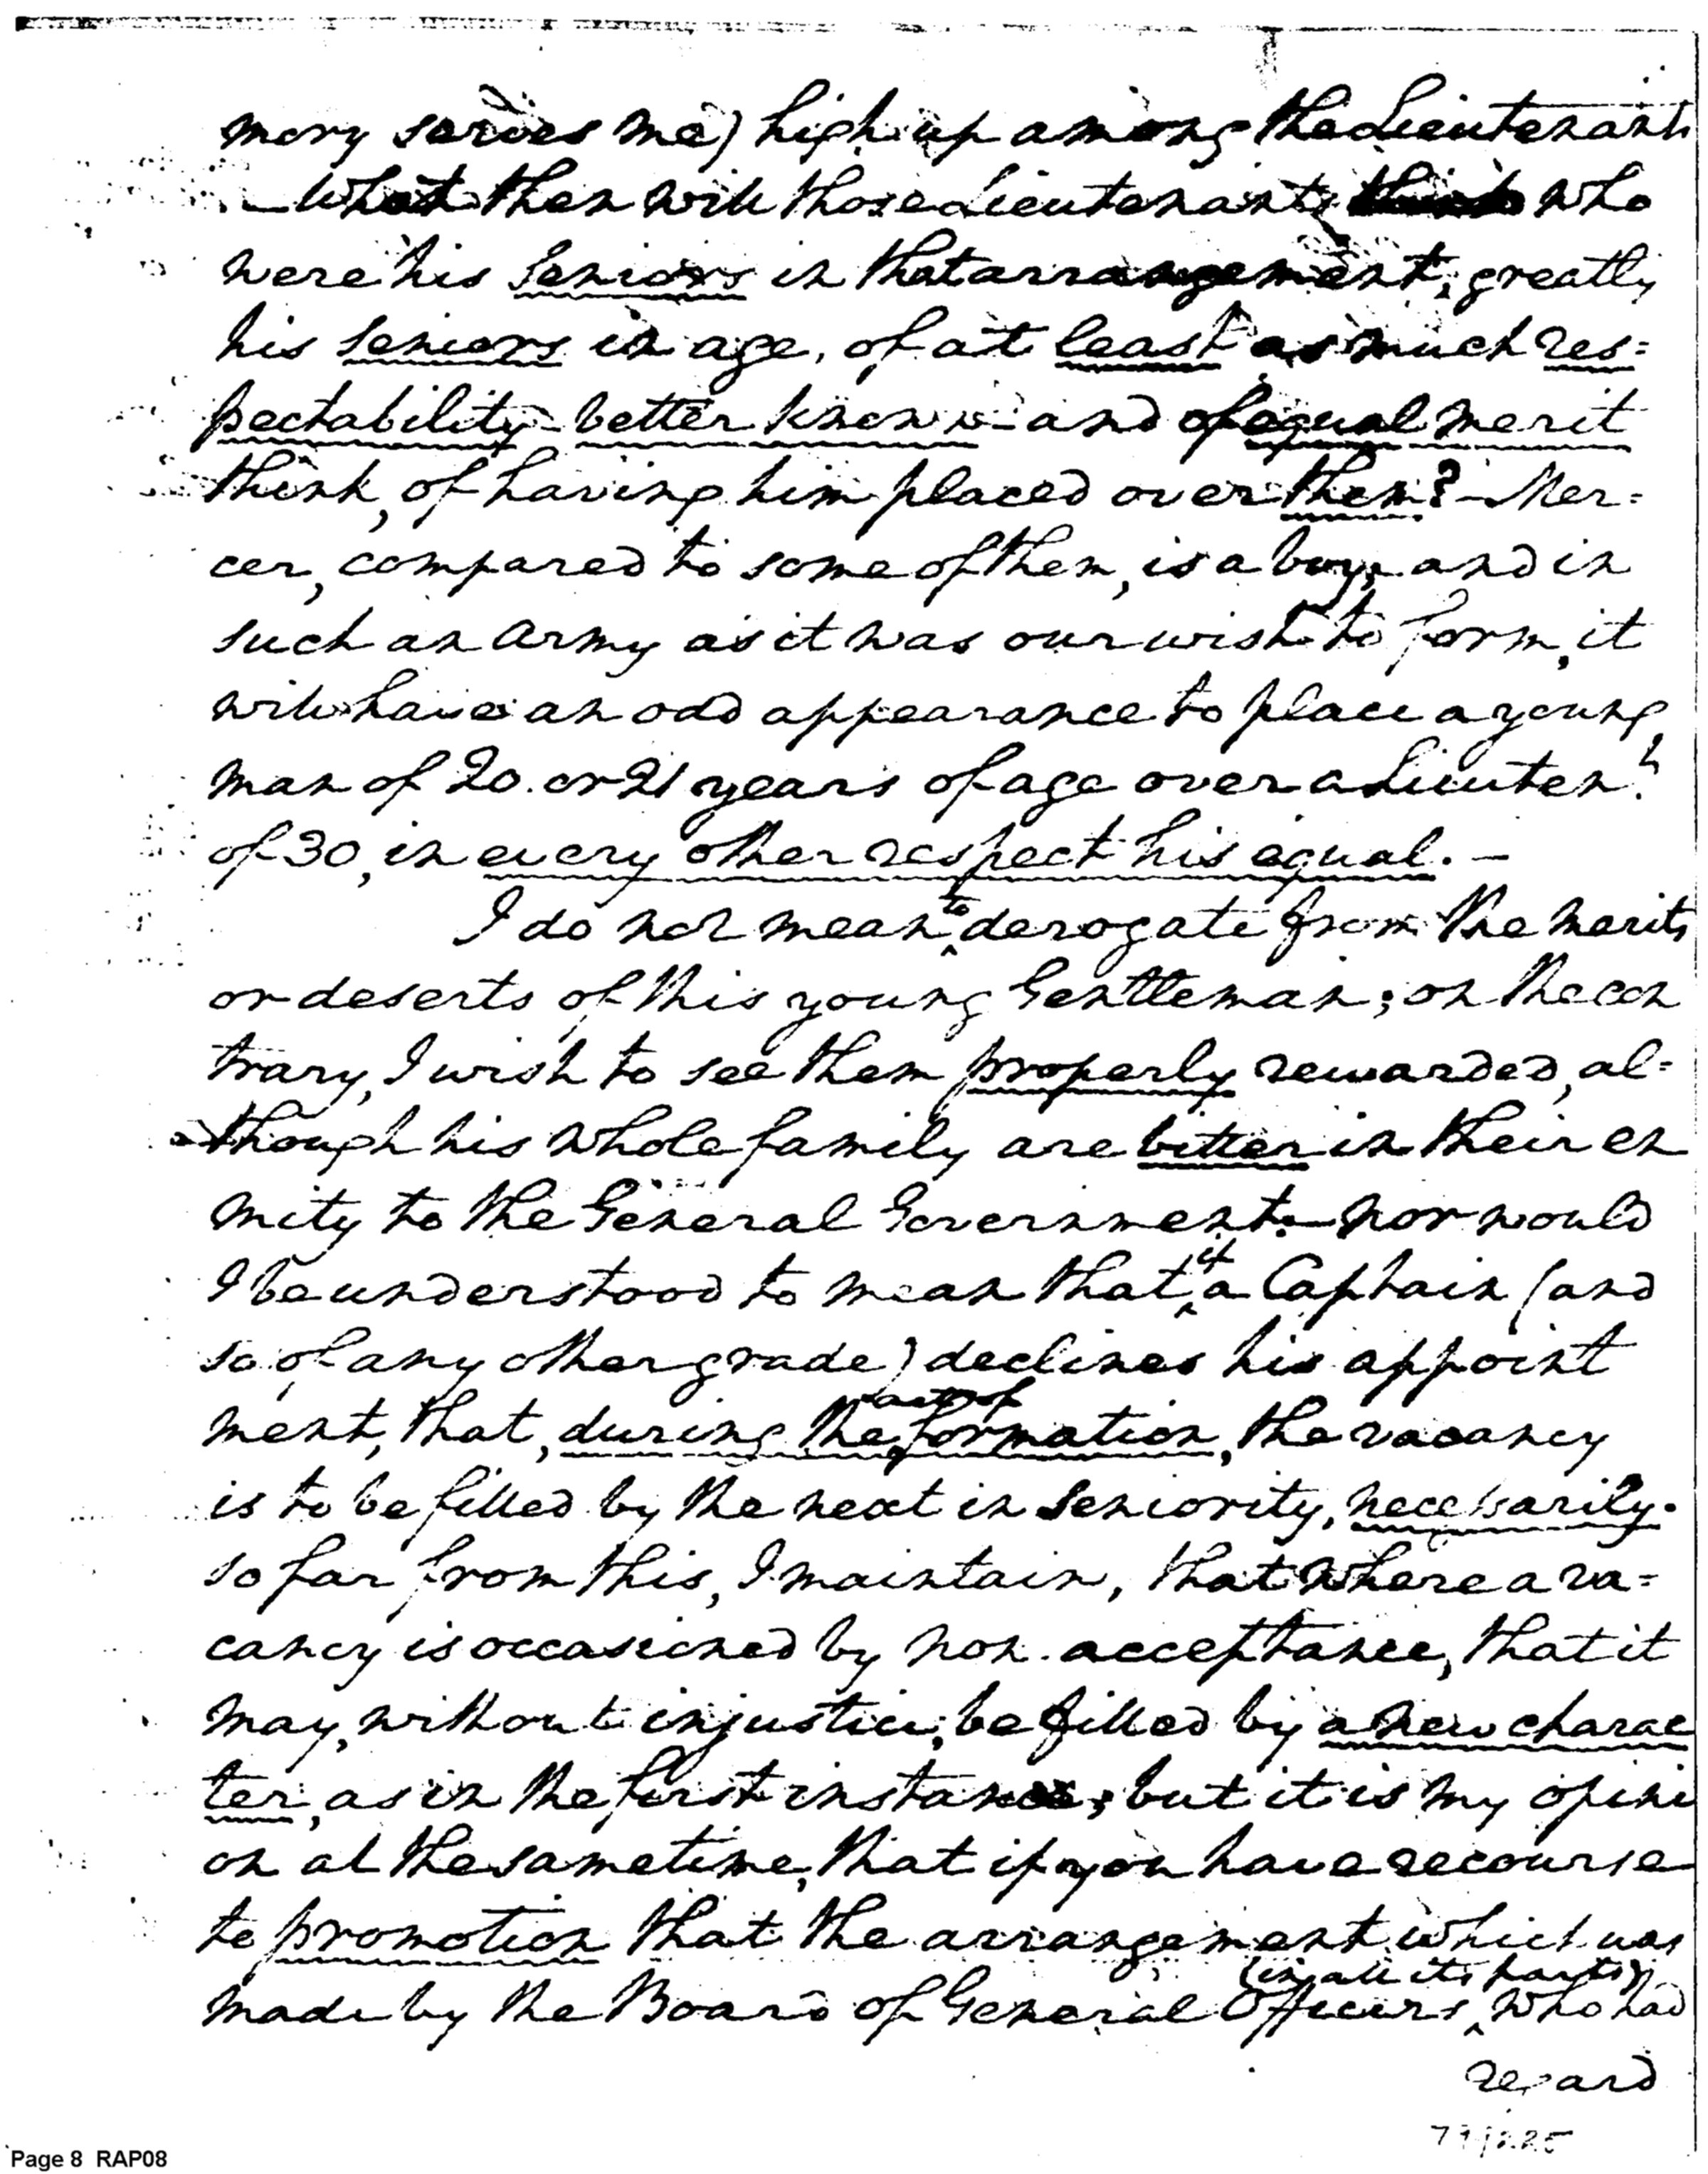 mory serves me) high up among the Lieutenants
– What then will those Lieutenants who
were his Seniors in that arrangement, greatly
his Seniors in age, of at least as much res=
pectability – better known – and of equal merit
think, of having him placed over them? – Mer=
cer, compared to some of them, is a boy; and in
such an Army as it was our wish to form, it
will have an odd appearance to place a young
man of 20. or 21 years of age over a Lieuten.t
of 30, in every other respect his equal. –
I do not mean to derogate from the merits
or deserts of this young Gentleman; on the con
trary, I wish to see them properly rewarded, al=
though his whole family are bitter in their en
mity to the General Government. – nor would
I be understood to mean that if a Captain (and
so of any other grade) declines his appoint
ment, that, during the act of formation, the vacancy
is to be filled by the next in Seniority, necessarily.
so far from this, I maintain, that where a va=
cancy is occasioned by non. acceptance, that it
may, without injustice, be filled by a new charac
ter, as in the first instance; but it is my opini
on at the same time, that if you have recourse
to promotion that the arrangement which was
made by the Board of General Officers (in all its parts) who had
regard
Page 8 RAP08